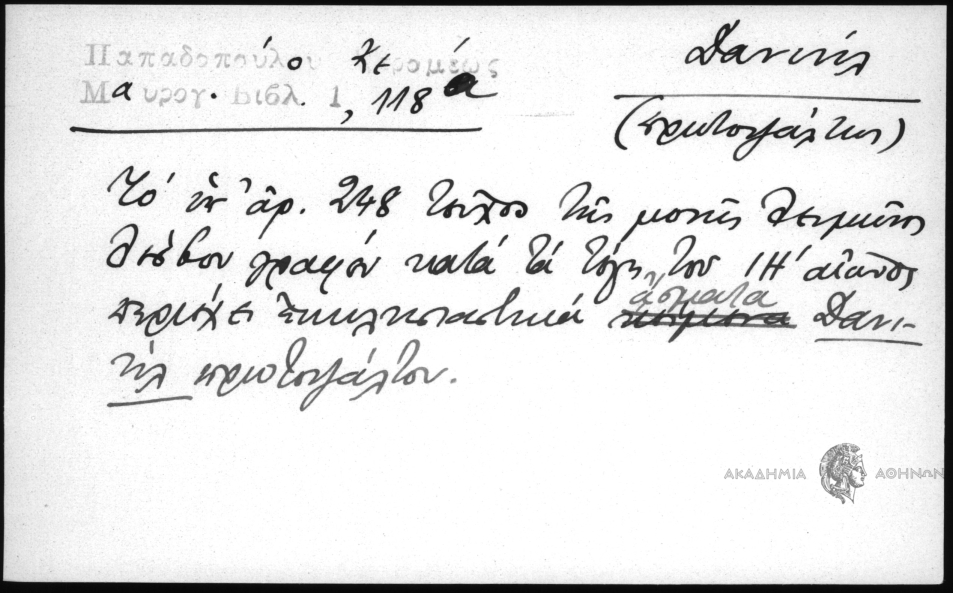 Παπαδοπούλου Κεραμέως
Μαυρογ. Βιβλ. 1, 118 α
Δανιήλ
(πρωτοψάλτης)
Τό ὑπ' ἀρ. 248 τεῦχος τῆς μονῆς Λειμῶνος
Λέσβου γραφέν κατά τά τέλη τοῦ ΙΗ' αἰῶνος
περιέχει ἐκκλησιαστικά ᾄσματα Δανι-
ήλ πρωτοψάλτου.
ΑΚΑΔΗΜΙΑ ΑΘΗΝΩΝ